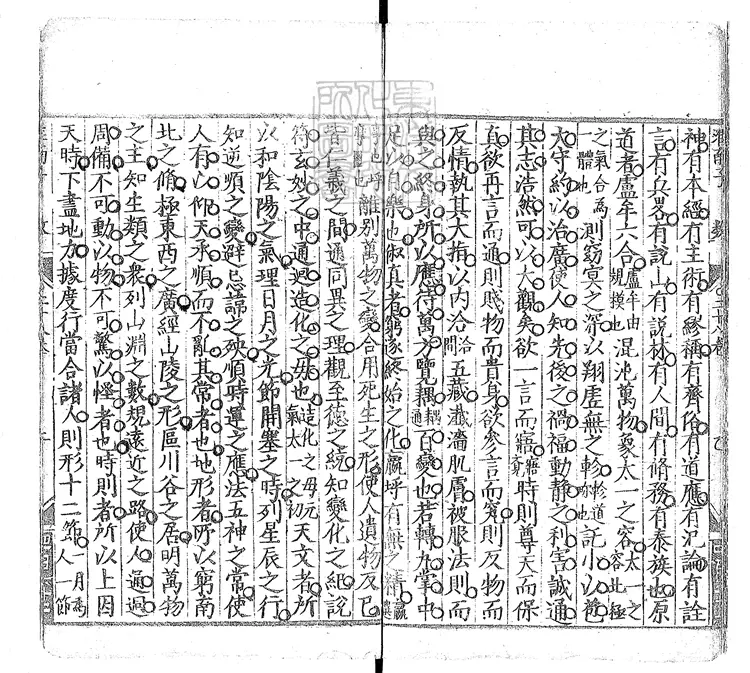 神有本經有主術有繆稱有齊俗有道應有汜論有詮
言有兵畧有說山有說林有人間有脩務有泰族也原
道者盧牟六合盧牟由規模也混沌萬物象太一之容太一之容北極
之氣合爲一體也測窈冥之深以翔虛無之軫軫道也託小以苞
大守約以治廣使人知先後之禍福動静之利害誠通
其志浩然可以大觀矣欲一言而寤時則尊天而保
真欲再言而通則賤物而貴身欲參言而窮則反物而
反情執其大指以内洽五藏瀸濇肌膚被服法則而
與之終身所以應待萬方覽耦百變也若轉丸掌中
足以自樂也俶真者窮逐終始之化嬴呼有無之精
離别萬物之變合用死生之形使人遺物反己
審仁義之間通同異之理觀至德之統知變化之紀說
符玄妙之中通迴造化之母也造化之母元氣太一之初天文者所
以和陰陽之氣理日月之光節開塞之時列星辰之行
知逆順之變避忌諱之殃順時運之應法五神之常使
人有以仰天承順而不亂其常者也地形者所以窮南
北之脩極東西之廣經山陵之形區川谷之居明萬物
之主知生類之衆列山淵之數規遠近之路使人通迴
周備不可動以物不可驚以怪者也時則者所以上因
天時下盡地力據度行當合諸人則形十二節一月爲人一節